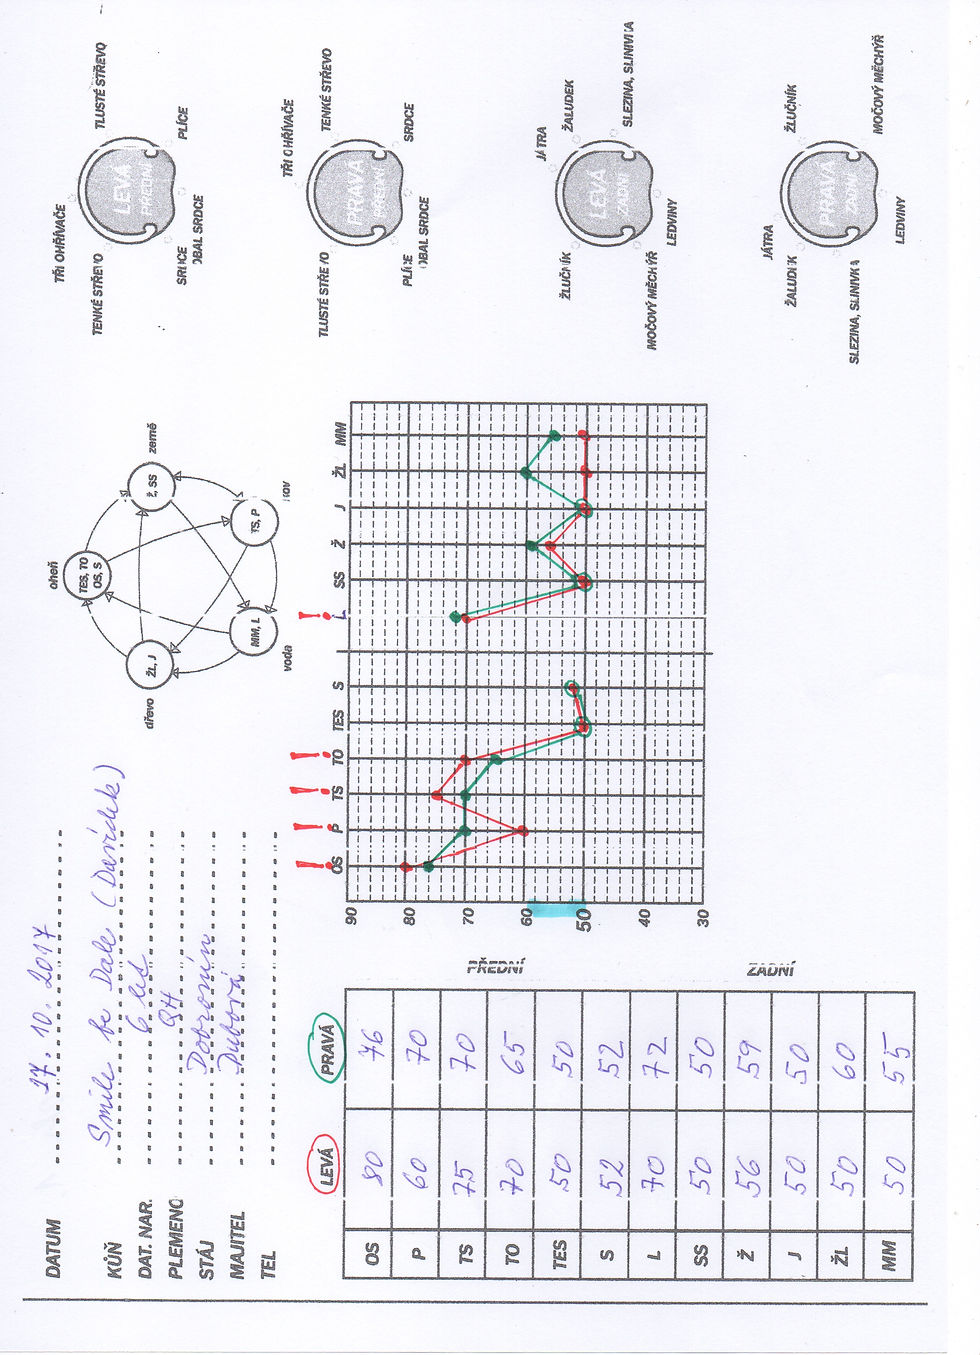 DATUM 17. 10. 2017
KŮŇ Smile be Dale (Davídek)
DAT. NAR. 6 let
PLEMENO QH
STÁJ Dobronín
MAJITEL Dubová
TEL
LEVÁ PRAVÁ
OS 80 76
P 60 70
TS 75 70
TO 70 65
TES 50 50
S 52 52
L 70 72
SS 50 50
Ž 56 59
J 50 50
ŽL 50 60
MM 50 55
PŘEDNÍ
ZADNÍ
oheň
TES, TO
OS, S
dřevo
ŽL, J
země
Ž, SS
voda
MM, L
kov
TS, P
! ! ! ! !
OS P TS TO TES S L SS Ž J ŽL MM
90
80
70
60
50
40
30
TŘI OHŘÍVAČE
TENKÉ STŘEVO
TLUSTÉ STŘEVO
LEVÁ
PŘEDNÍ
SRDCE
OBAL SRDCE
PLÍCE
TŘI OHŘÍVAČE
TLUSTÉ STŘEVO
TENKÉ STŘEVO
PRAVÁ
PŘEDNÍ
PLÍCE
OBAL SRDCE
SRDCE
JÁTRA
ŽLUČNÍK
ŽALUDEK
LEVÁ
ZADNÍ
MOČOVÝ MĚCHÝŘ
LEDVINY
SLEZINA, SLINIVKA
JÁTRA
ŽALUDEK
ŽLUČNÍK
PRAVÁ
ZADNÍ
SLEZINA, SLINIVKA
LEDVINY
MOČOVÝ MĚCHÝŘ